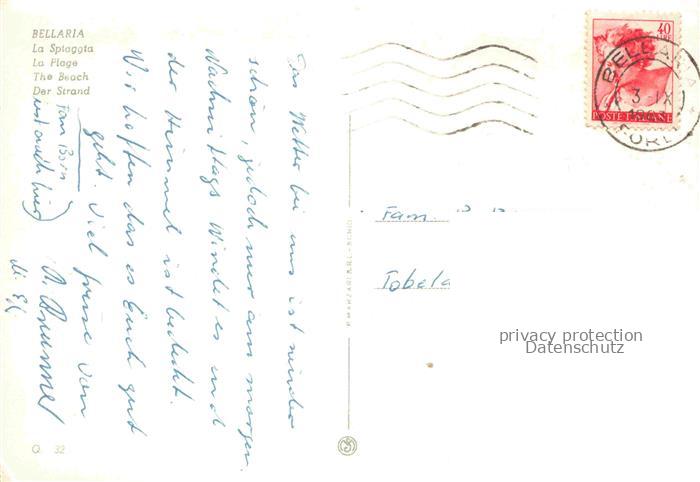 BELLARIA
La Spiaggia
La Plage
The Beach
Der Strand
Das Wetter bei uns ist wieder
schön, jedoch nur am morgen
Nachmittags Windet es und
der Himmel ist bedeckt.
Wir hoffen das es Euch gut
geht. Viel grüsse von
A. Brunner
(Fam Born
ist auch hier)
Q. 32
40
LIRE
POSTE ITALIANE
BELLARIA
3 - IX
FORLI
Fam.
Tobela
privacy protection
Datenschutz